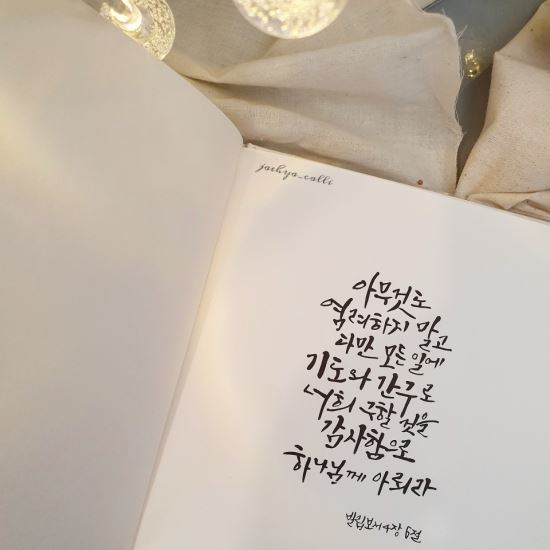 jaehyo_calli
아무것도
염려하지 말고
다만 모든 일에
기도와 간구로
너희 구할 것을
감사함으로
하나님께 아뢰라
빌립보서 4장 6절